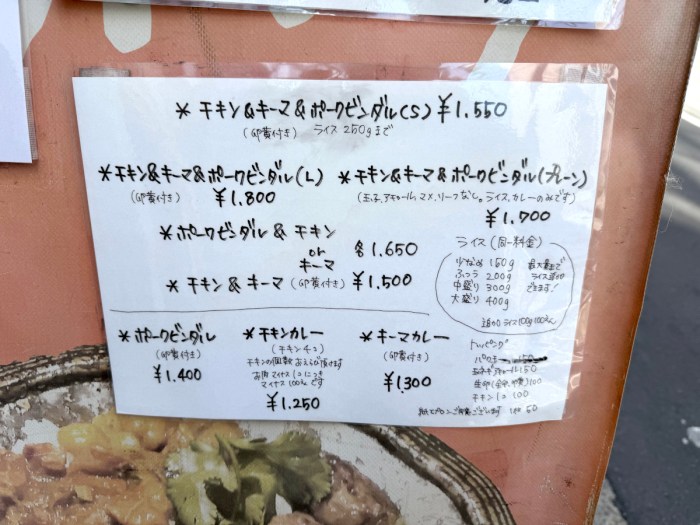 * チキン&キーマ&ポークビンダル(S) ¥1.550
(卵黄付き) ライス250gまで
*チキン&キーマ&ポークビンダル(L)
(卵黄付き) ¥1.800
*チキン&キーマ&ポークビンダル(プレーン)
(玉子,アチャール,マメ,リーフなし。ライス,カレーのみです)
¥1.700
*ポークビンダル & チキン
or
キーマ
各 1.650
* チキン & キーマ (卵黄付き) ¥1.500
ライス (同一料金)
少なめ 150g
ふつう 200g
中盛り 300g
大盛り 400g
最大量まで
できます!
追加ライス100g 100えん
*ポークビンダル
(卵黄付き)
¥1.400
*チキンカレー
(チキン4コ)
チキンの個数おえらび頂けます
マイナス1コにつき
マイナス100えんです
¥1.250
*キーマカレー
(卵黄付き)
¥1300
トッピング
パクチー
アチャール 150
100
チキン1コ 100
紙エプロンご用意ございます 1枚 50